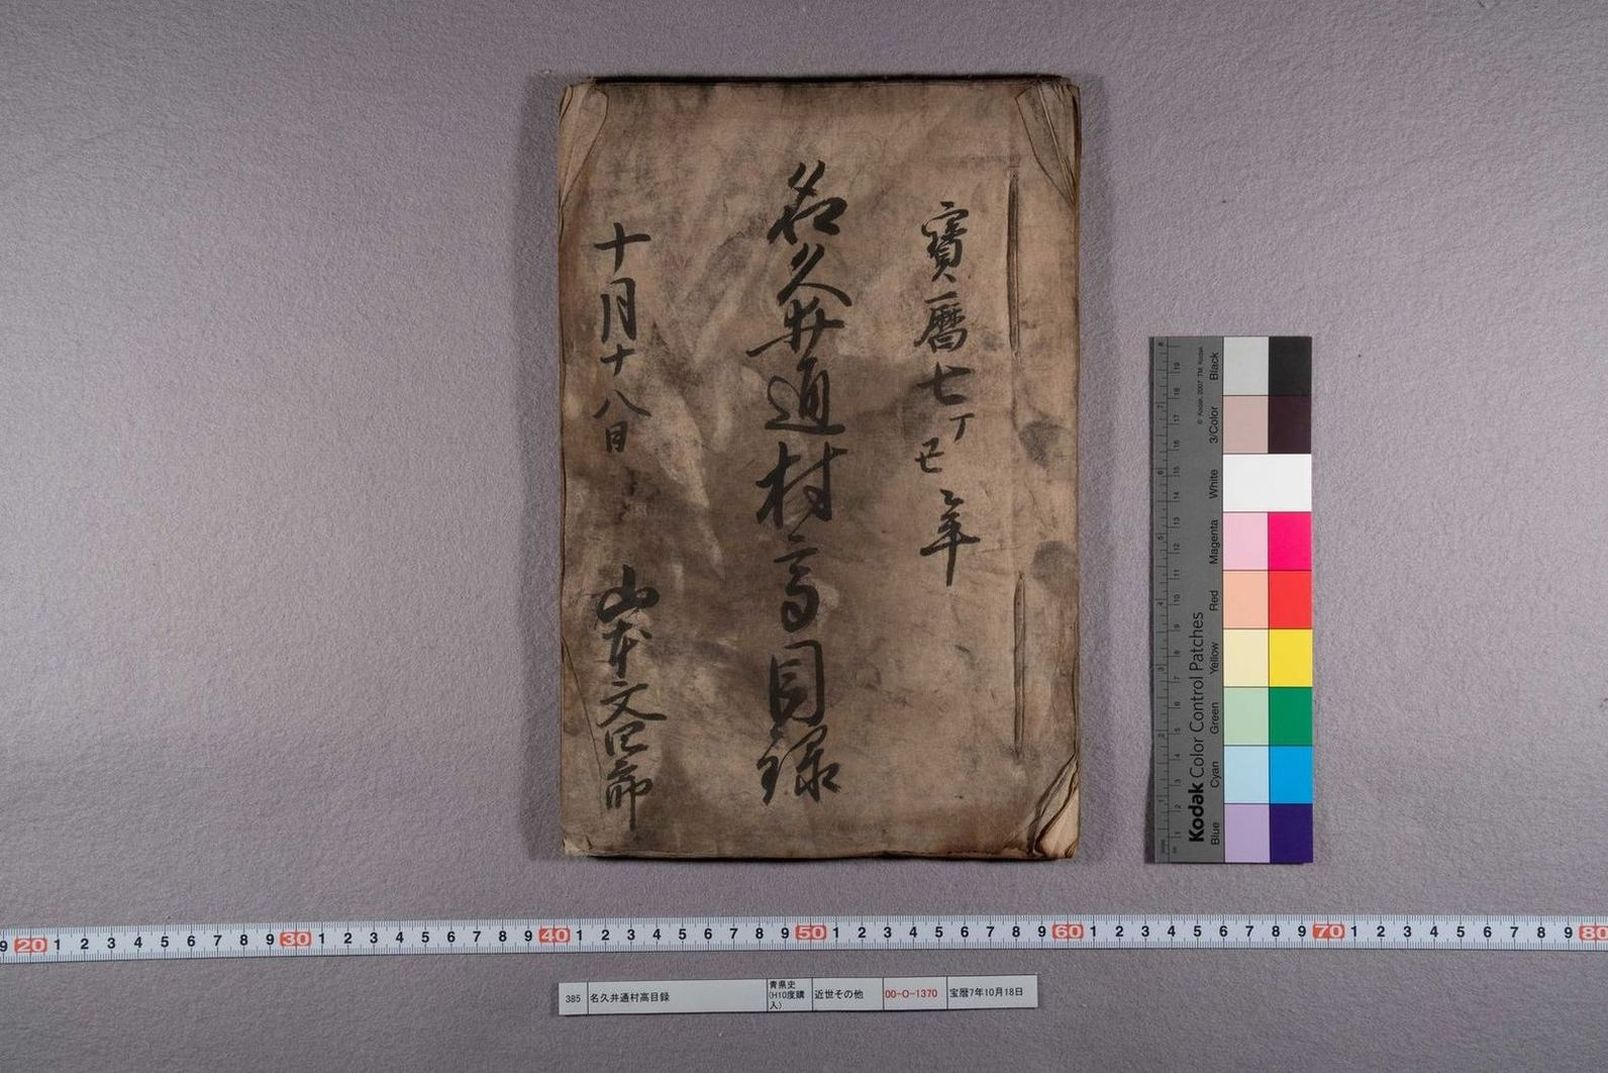 寳暦七丁巳年
名久井通村高目録
十月十八日 山本文四郎
Kodak Color Control Patches
© Kodak, 2007 TM: Kodak
Black
3/Color
White
Magenta
Red
Yellow
Green
Cyan
Blue
9 20 1 2 3 4 5 6 7 8 9 30 1 2 3 4 5 6 7 8 9 40 1 2 3 4 5 6 7 8 9 50 1 2 3 4 5 6 7 8 9 60 1 2 3 4 5 6 7 8 9 70 1 2 3 4 5 6 7 8 9 80
385 名久井通村高目録 青県史(H10度購入) 近世その他 00-O-1370 宝暦7年10月18日